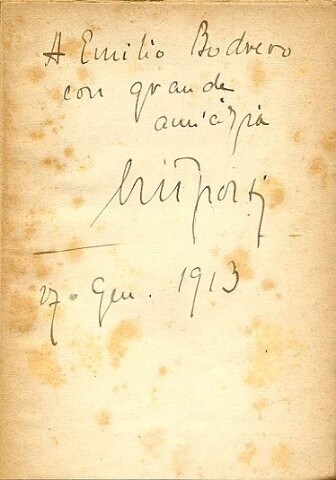 A Emilio Bodrero
con grande
amicizia
27. Gen. 1913